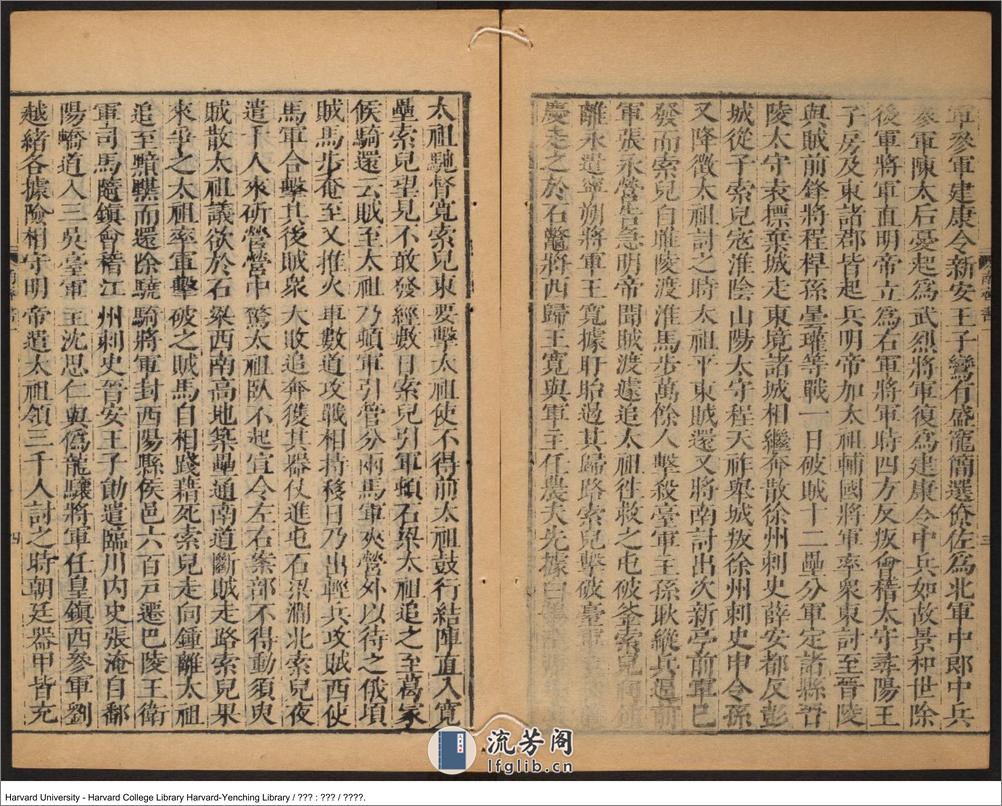 軍參軍建康令新安王子鸞有盛寵簡選僚佐為北軍中郎中兵
參軍陳太后憂起為武烈將軍復為建康令中兵如故景和世除
後軍將軍直明帝立為右軍將軍時四方反叛會稽太守尋陽王
子房及東諸郡皆起兵明帝加太祖輔國將軍率衆東討至晉陵
與賊前鋒將程捍孫曇瓘等戰一日破賊十二壘分軍定諸縣晉
陵太守袁摽棄城走東境諸城相繼奔散徐州刺史薛安都反彭
城從子索兒寇淮陰山陽太守程天祚舉城叛徐州刺史申令孫
又降徵太祖討之時太祖平東賊還又將南討出次新亭前軍已
發而索兒自睢陵渡淮馬步萬餘人擊殺臺軍主孫耿縱兵逼前
軍張永營告急明帝聞賊渡遽追太祖往救之屯破釜索兒向鍾
離永遣寧朔將軍王寬據盱眙遏其歸路索兒擊破臺軍主
慶走之於石鼈將西歸王寬與軍主任農夫先據白
三
太祖馳督寬索兒東要擊太祖使不得前太祖鼓行結陣直入寬
壘索兒望見不敢發經數日索兒引軍頓石梁太祖追之至葛冢
候騎還云賊至太祖乃頓軍引管分兩馬軍夾營外以待之俄頃
賊馬步奄至又推火車數道攻戰相持移日乃出輕兵攻賊西使
馬軍合擊其後賊衆大敗追奔獲其器仗進屯石梁澗北索兒夜
遣千人來斫營營中驚太祖臥不起宣令左右案部不得動須臾
賊散太祖議欲於石梁西南高地築壘通南道斷賊走路索兒果
來爭之太祖率軍擊破之賊馬自相踐藉死索兒走向鍾離太祖
追至黯黮而還除驍騎將軍封西陽縣侯邑六百戶遷巴陵王衛
軍司馬隨鎮會稽江州刺史晉安王子勛遣臨川內史張淹自鄱
陽嶠道入三吳臺軍主沈思仁與偽龍驤將軍任皇鎮西參軍劉
越緒各據險相守明帝遣太祖領三千人討之時朝廷器甲皆充
四
流芳阁
lfglib.cn
Harvard University - Harvard College Library Harvard-Yenching Library / ??? : ??? / ????.